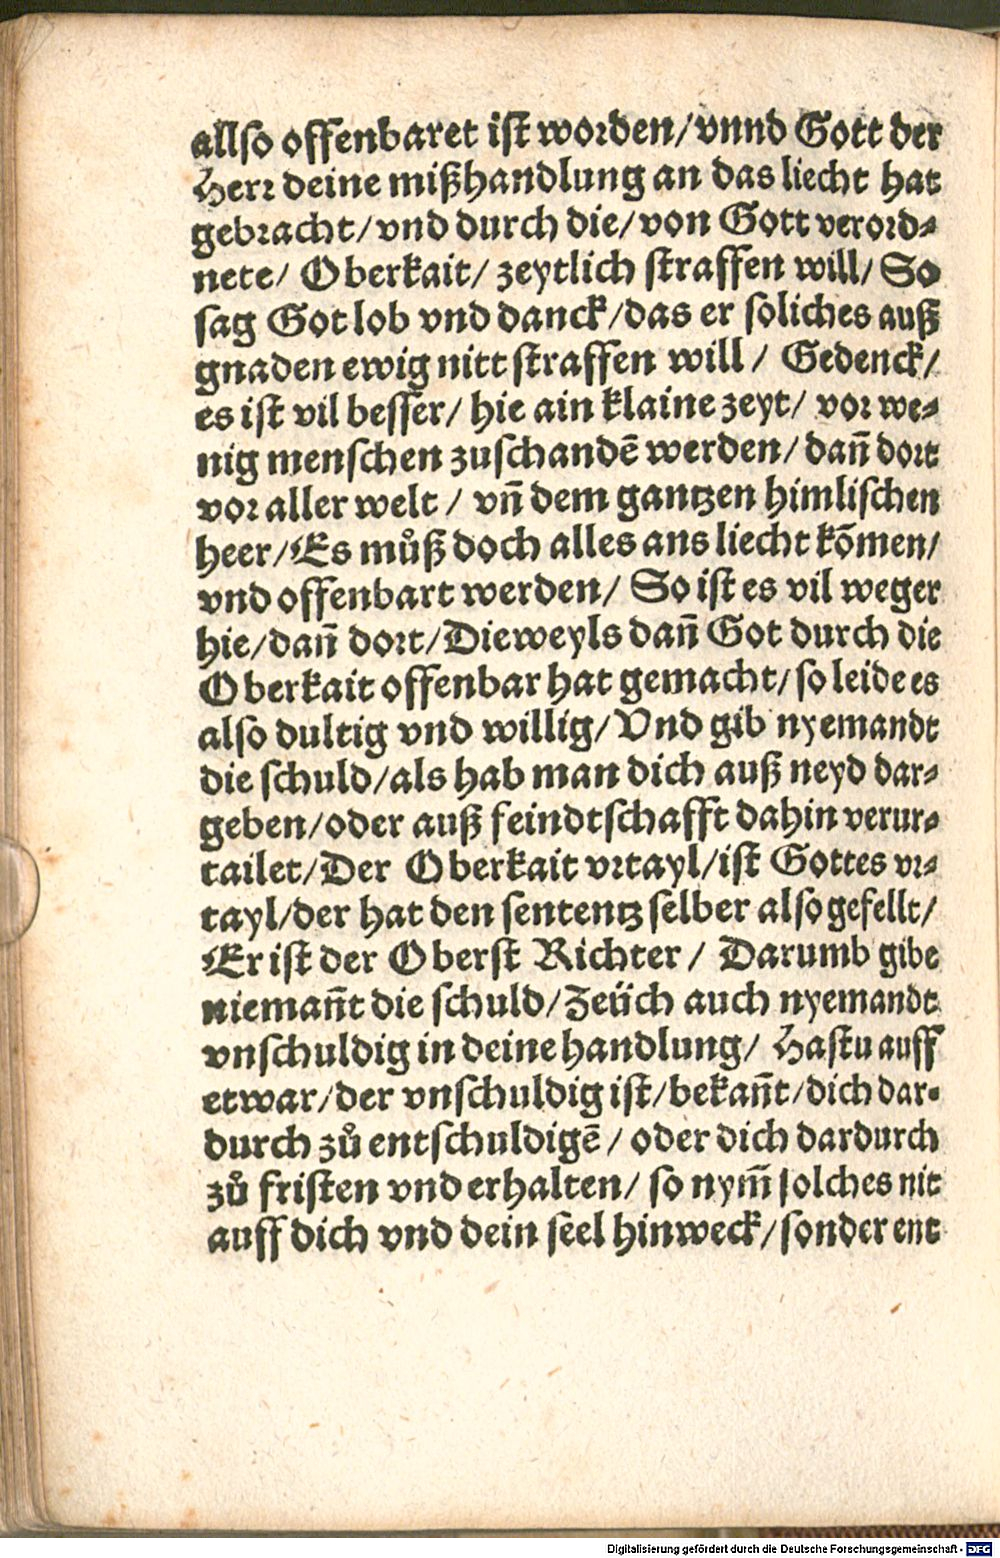 allso offenbaret ist worden/vnnd Gott der
Herr deine mißhandlung an das liecht hat
gebracht/vnd durch die/von Gott verord-
nete/ Oberkait/ zeytlich straffen will/ So
sag Got lob vnd danck/das er soliches auß
gnaden ewig nitt straffen will/ Gedenck/
es ist vil besser/ hie ain klaine zeyt/ vor we-
nig menschen zuschandē werden/ dañ dort
vor aller welt/ vñ dem gantzen himlischen
heer/Es můß doch alles ans liecht kōmen/
vnd offenbart werden/ So ist es vil weger
hie/dañ dort/Dieweyls dañ Got durch die
Oberkait offenbar hat gemacht/so leide es
also dultig vnd willig/Vnd gib nyemandt
die schuld/als hab man dich auß neyd dar-
geben/oder auß feindtschafft dahin verur-
tailet/Der Oberkait vrtayl/ist Gottes vr-
tayl/der hat den sententz selber also gefellt/
Er ist der Oberst Richter/ Darumb gibe
niemañt die schuld/Zeüch auch nyemandt
vnschuldig in deine handlung/ Hastu auff
etwar/der vnschuldig ist/bekañt/dich dar-
durch zů entschuldigē/ oder dich dardurch
zů fristen vnd erhalten/ so nym̄ solches nit
auff dich vnd dein seel hinweck/sonder ent
Digitalisierung gefördert durch die Deutsche Forschungsgemeinschaft - DFG